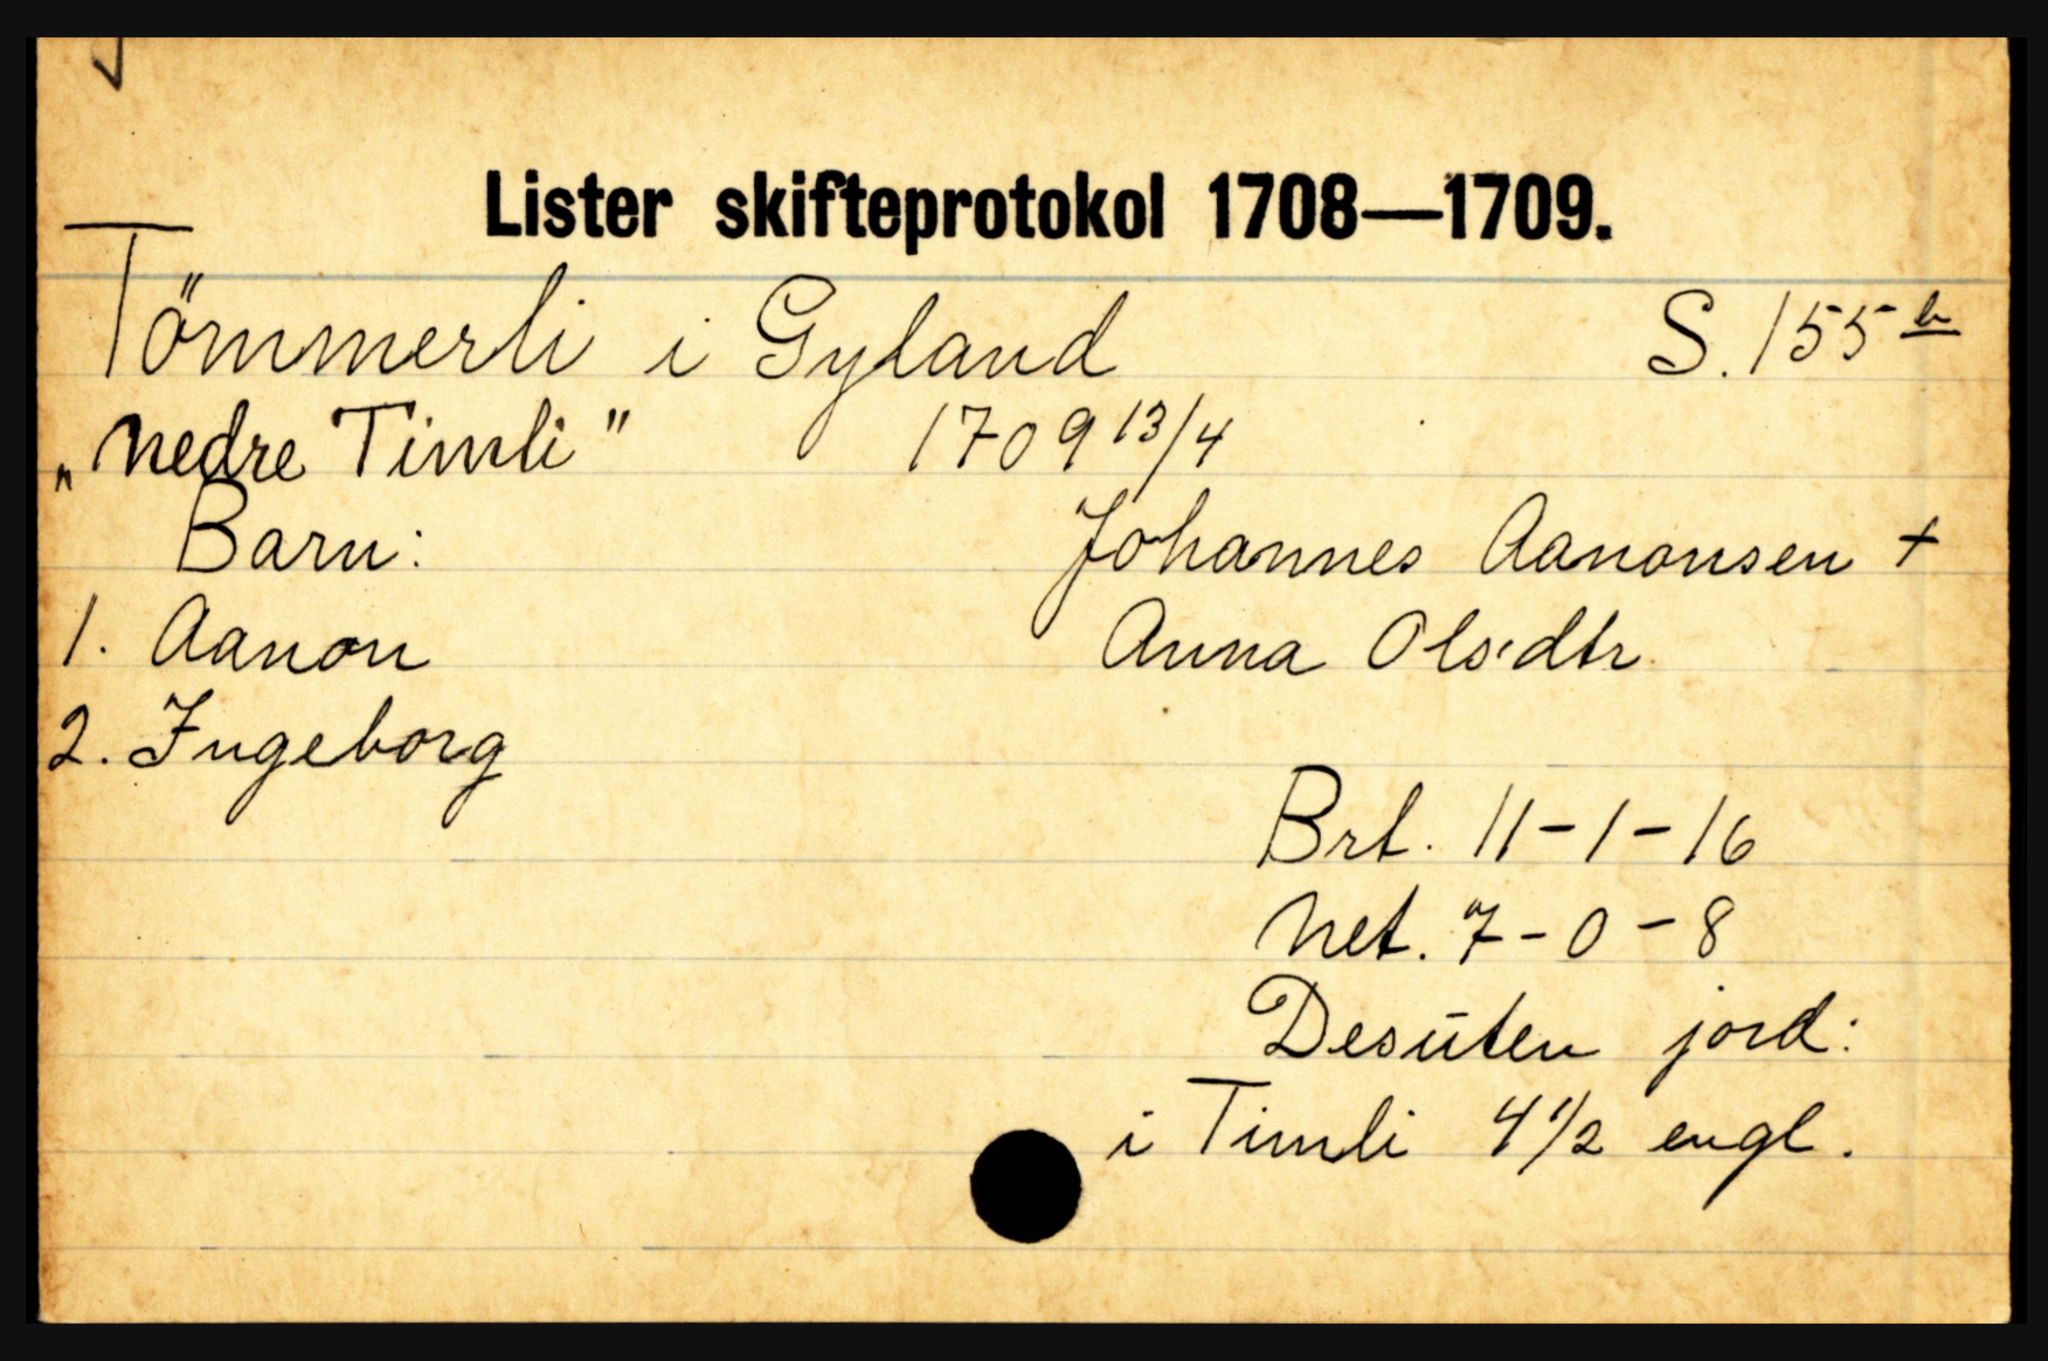 Lister skifteprotokol 1708—1709.
Tömmerli i Gyland S. 155 b
„Nedre Timli" 1709 13/4
Barn: Johannes Aanonsen +
1. Aanon Anna Olsdtr
2. Ingeborg
Brt. 11-1-16
Net. 7-0-8
Desūten jord:
i Timli 4 1/2 engl.